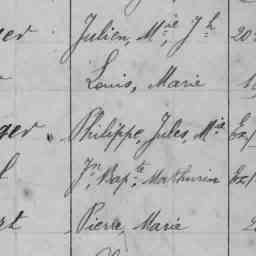 Julien, Mie, Jh 20
Louis, Marie
Philippe, Jules, Mie
Jn, Bapte, Mathurin
Pierre, Marie